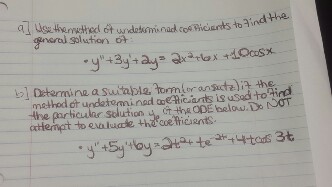 a] Use the method of undetermined coefficients to find the
general solution of:
• y" + 3y' + 2y = 2x² + 6x + 10cosx
b.] Determine a suitable form (or ansatz) if the
method of undetermined coefficients is used to find
the particular solution yₚ of the ODE below. Do NOT
attempt to evaluate the coefficients.
• y" + 5y' + 6y = 2t² + te⁻²ᵗ + 4t cos 3t